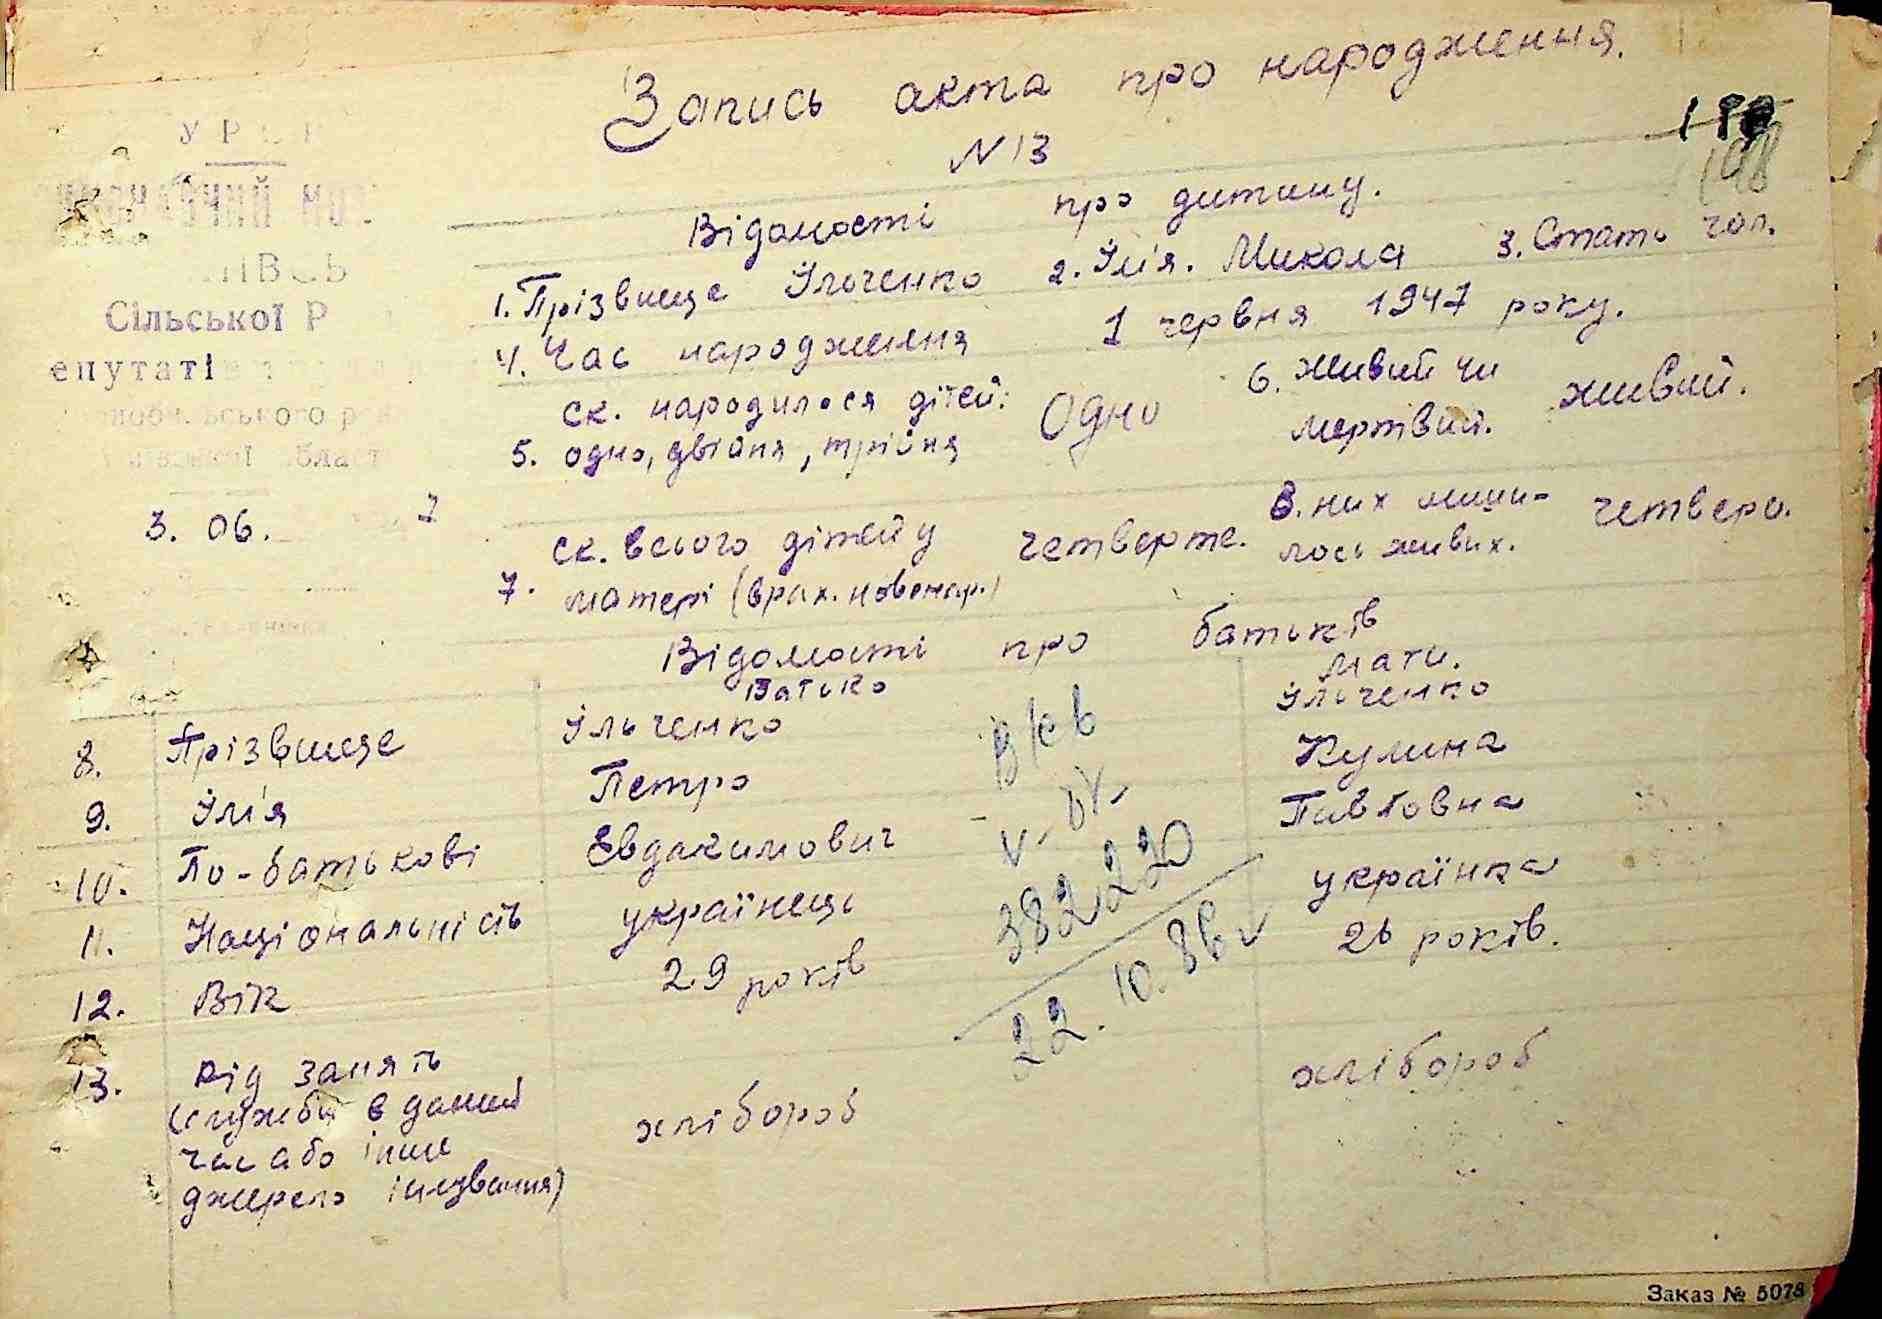 Запись акта про народження.
N 13
198
УРСР
Відомості про дитину.
1. Прізвище Ільченко 2. Ім'я. Микола 3. Стать чол.
Сільської
4. Час народження 1 червня 1947 року.
ск. народилося дітей:
5. одно, двійня, трійня Одно 6. живий чи мертвий. живий.
3. 06. 7
ск. всього дітей у
7. матері (врах. новонар.) четверте. 8. них лиши-
лось живих. четверо.
Відомості про батьків
Батько Мати.
8. Прізвище Ільченко Ільченко
9. Ім'я Петро Кулина
10. По-батькові Евдакимович Павловна
11. Національність українець українка
12. Вік 29 років 26 років.
382220
22.10.86
13. Рід занять
(служба в даний
час або інше
джерело існування) хлібороб хлібороб
Заказ № 5078